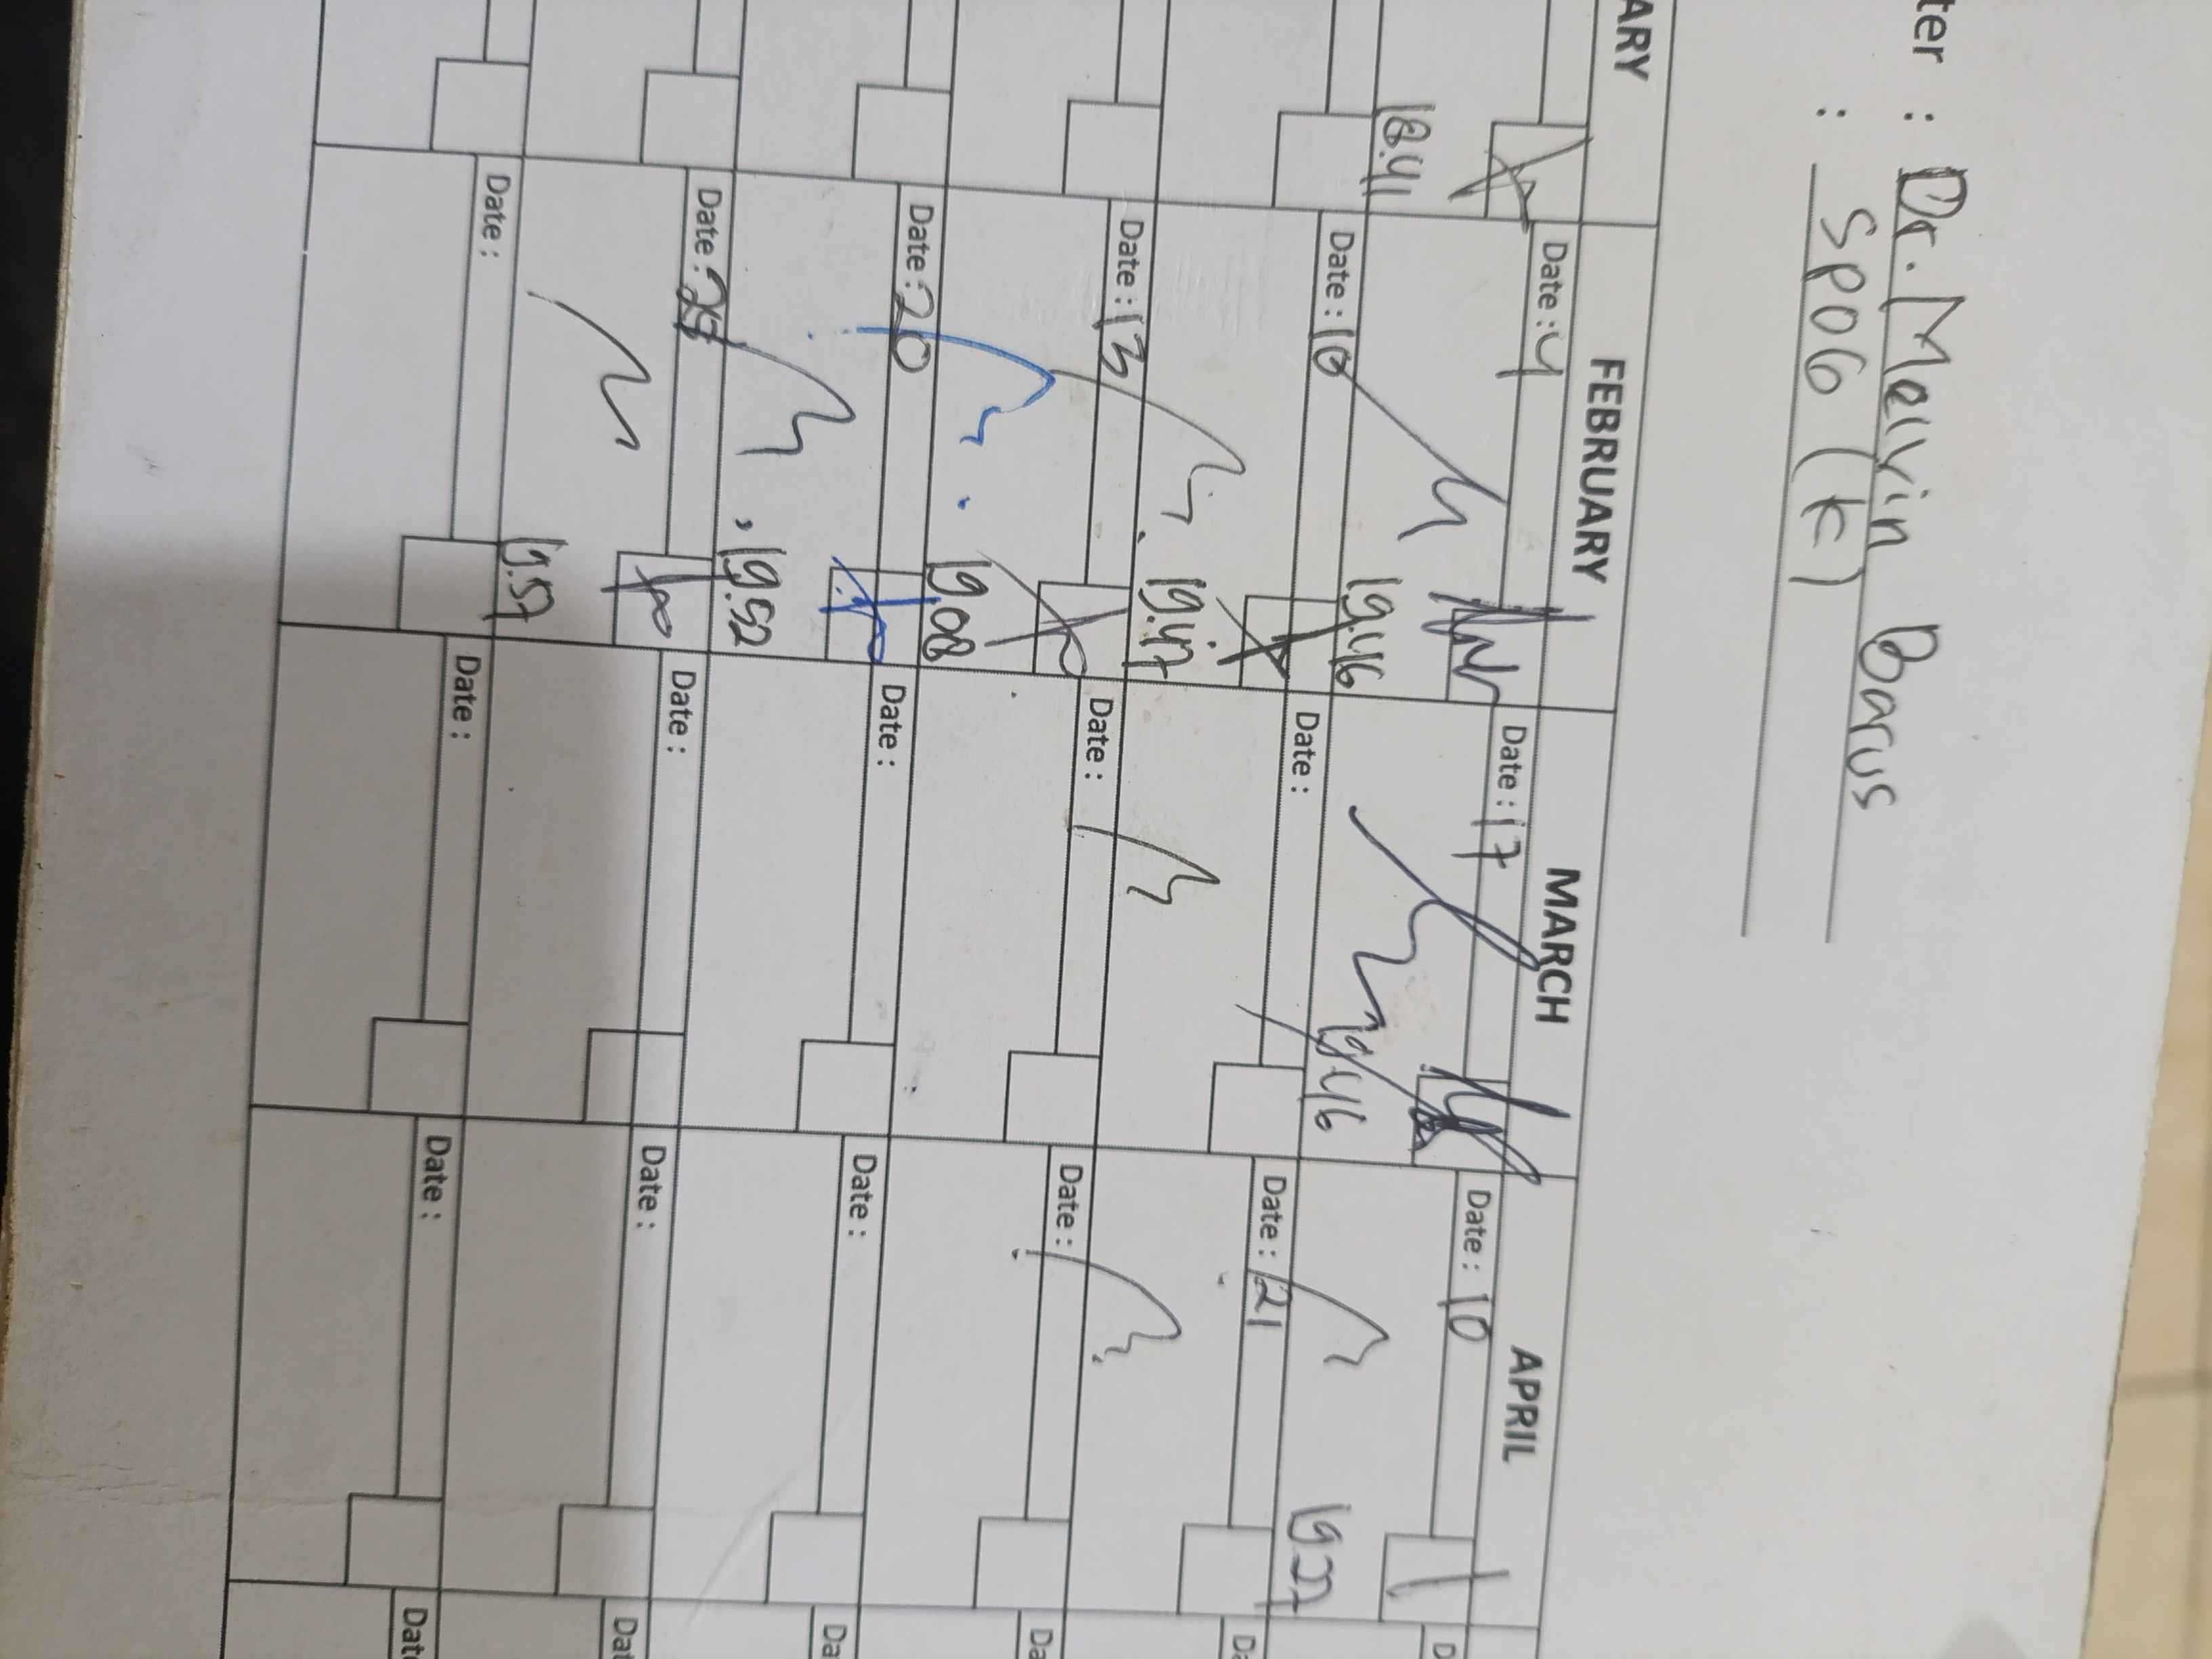 ter : Dr. Melvin Barus
: SPOG (K)
ARY FEBRUARY MARCH APRIL
Date : 4 Date : 17 Date : 10
18.41 19.46 19.46 19.27
Date : 10 Date : Date : 21
19.47
Date : 13 Date : Date :
19.08
Date : 20 Date : Date :
19.52
Date : 25 Date : Date :
19.57
Date : Date : Date :